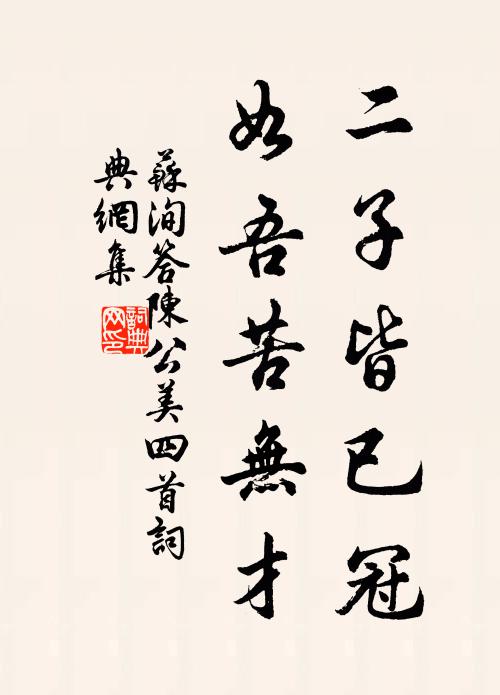 二子皆已冠
如吾苦無才
蘇洵答陳公美四首詞
典網集
詞典
网印